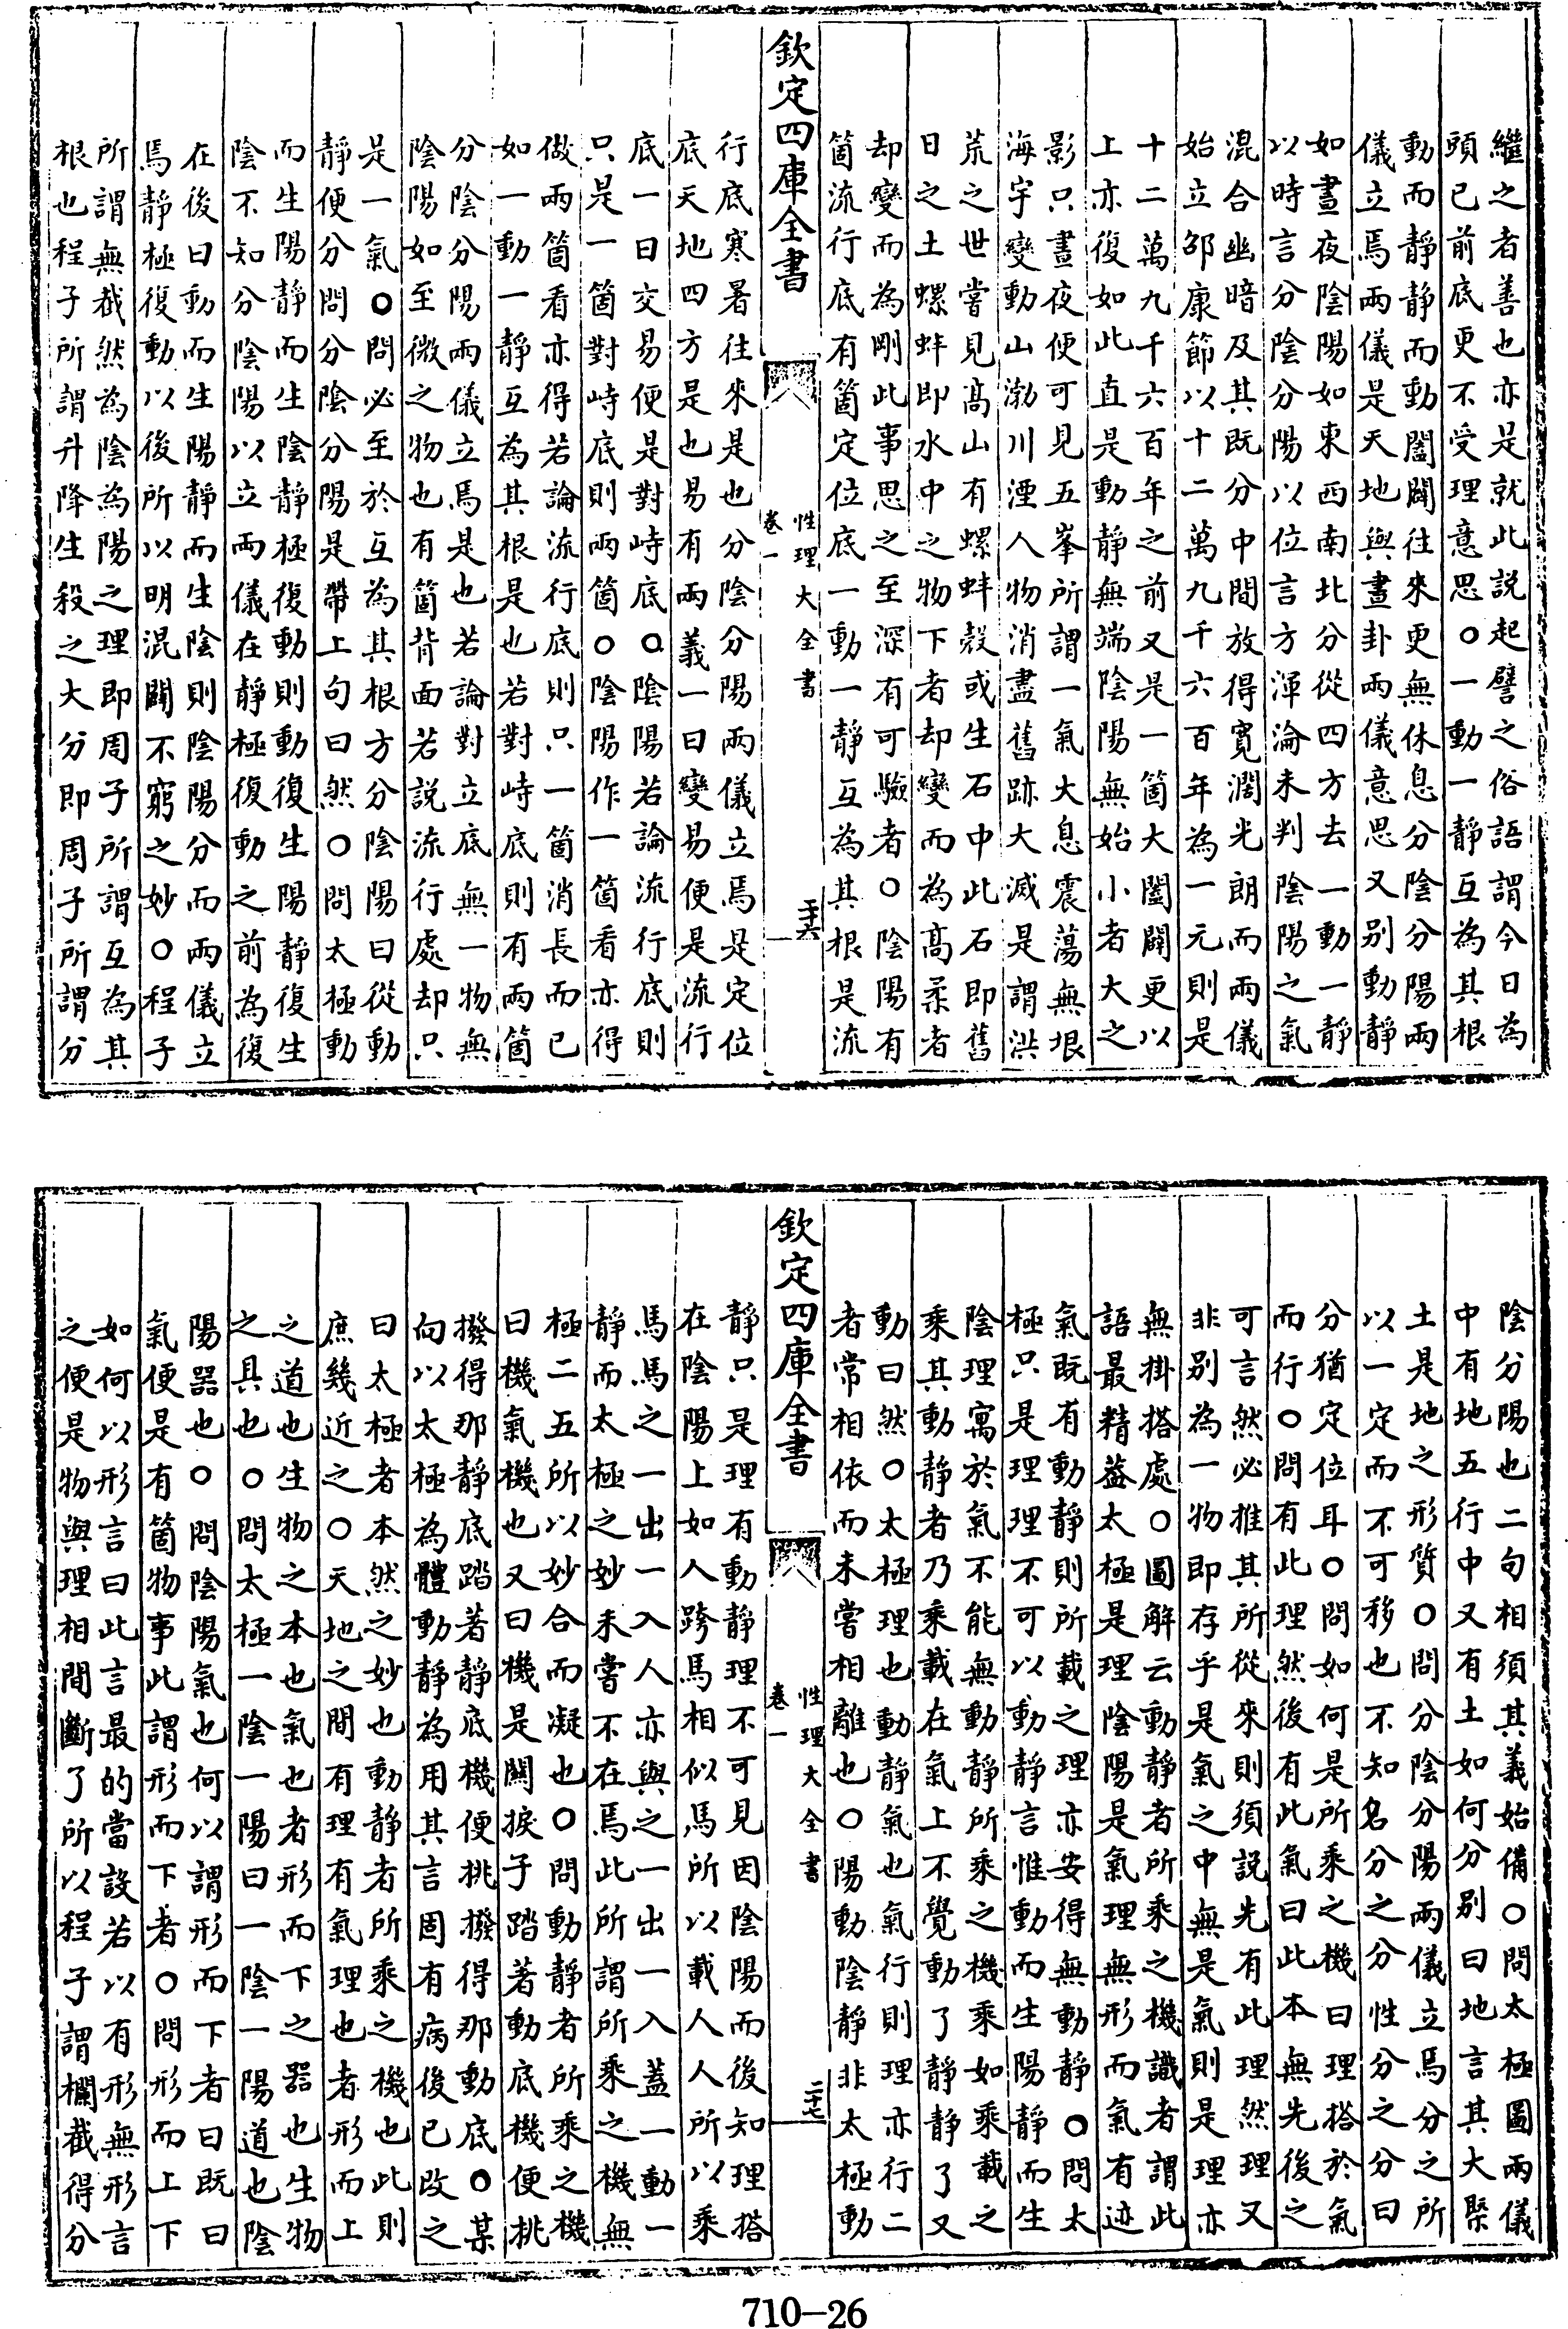 繼之者善也亦是就此説起譬之俗語謂今日為
頭已前底更不受理意思○一動一靜互為其根
動而靜靜而動闔闢往來更無休息分陰分陽兩
儀立焉兩儀是天地與畫卦兩儀意思又别動靜
如晝夜陰陽如東西南北分從四方去一動一靜
以時言分陰分陽以位言方渾淪未判陰陽之氣
混合幽暗及其既分中間放得寛濶光朗而兩儀
始立邵康節以十二萬九千六百年為一元則是
十二萬九千六百年之前又是一箇大闔闢更以
上亦復如此直是動靜無端陰陽無始小者大之
影只晝夜便可見五峯所謂一氣大息震蕩無垠
海宇變動山渤川湮人物消盡舊跡大滅是謂洪
荒之世嘗見高山有螺蚌殼或生石中此石即舊
日之土螺蚌即水中之物下者却變而為高柔者
却變而為剛此事思之至深有可驗者○陰陽有
箇流行底有箇定位底一動一靜互為其根是流
欽定四庫全書
性理大全書
卷一
二十六
行底寒暑往來是也分陰分陽兩儀立焉是定位
底天地四方是也易有兩義一曰變易便是流行
底一曰交易便是對峙底○陰陽若論流行底則
只是一箇對峙底則兩箇○陰陽作一箇看亦得
做兩箇看亦得若論流行底則只一箇消長而已
如一動一靜互為其根是也若對峙底則有兩箇
分陰分陽兩儀立焉是也若論對立底無一物無
陰陽如至微之物也有箇背面若説流行處却只
是一氣○問必至於互為其根方分陰陽曰從動
靜便分問分陰分陽是帶上句曰然○問太極動
而生陽靜而生陰靜極復動則動復生陽靜復生
陰不知分陰陽以立兩儀在靜極復動之前為復
在後曰動而生陽靜而生陰則陰陽分而兩儀立
焉靜極復動以後所以明混闢不窮之妙○程子
所謂無截然為陰為陽之理即周子所謂互為其
根也程子所謂升降生殺之大分即周子所謂分
陰分陽也二句相須其義始備○問太極圖兩儀
中有地五行中又有土如何分别曰地言其大槩
土是地之形質○問分陰分陽兩儀立焉分之所
以一定而不可移也不知名分之分性分之分曰
分猶定位耳○問如何是所乘之機曰理搭於氣
而行○問有此理然後有此氣曰此本無先後之
可言然必推其所從來則須説先有此理然理又
非别為一物即存乎是氣之中無是氣則是理亦
無掛搭處○圖解云動靜者所乘之機識者謂此
語最精蓋太極是理陰陽是氣理無形而氣有迹
氣既有動靜則所載之理亦安得無動靜○問太
極只是理理不可以動靜言惟動而生陽靜而生
陰理寓於氣不能無動靜所乘之機乘如乘載之
乘其動靜者乃乘載在氣上不覺動了靜靜了又
動曰然○太極理也動靜氣也氣行則理亦行二
者常相依而未嘗相離也○陽動陰靜非太極動
欽定四庫全書
性理大全書
卷一
二十七
靜只是理有動靜理不可見因陰陽而後知理搭
在陰陽上如人跨馬相似馬所以載人人所以乘
馬馬之一出一入人亦與之一出一入蓋一動一
靜而太極之妙未嘗不在焉此所謂所乘之機無
極二五所以妙合而凝也○問動靜者所乘之機
曰機氣機也又曰機是關捩子踏著動底機便挑
撥得那靜底踏著靜底機便挑撥得那動底○某
向以太極為體動靜為用其言固有病後已改之
曰太極者本然之妙也動靜者所乘之機也此則
庶幾近之○天地之間有理有氣理也者形而上
之道也生物之本也氣也者形而下之器也生物
之具也○問太極一陰一陽曰一陰一陽道也陰
陽器也○問陰陽氣也何以謂形而下者曰既曰
氣便是有箇物事此謂形而下者○問形而上下
如何以形言曰此言最的當設若以有形無形言
之便是物與理相間斷了所以程子謂欄截得分
710-26